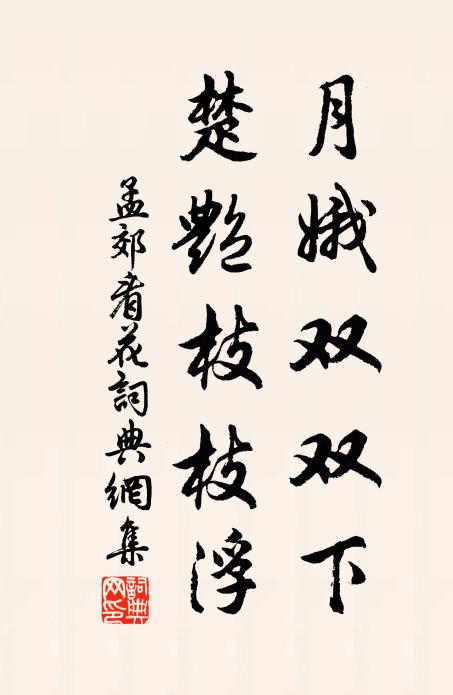 月娥双双下
楚艶枝枝浮
孟郊看花詞典網集
詞典網印